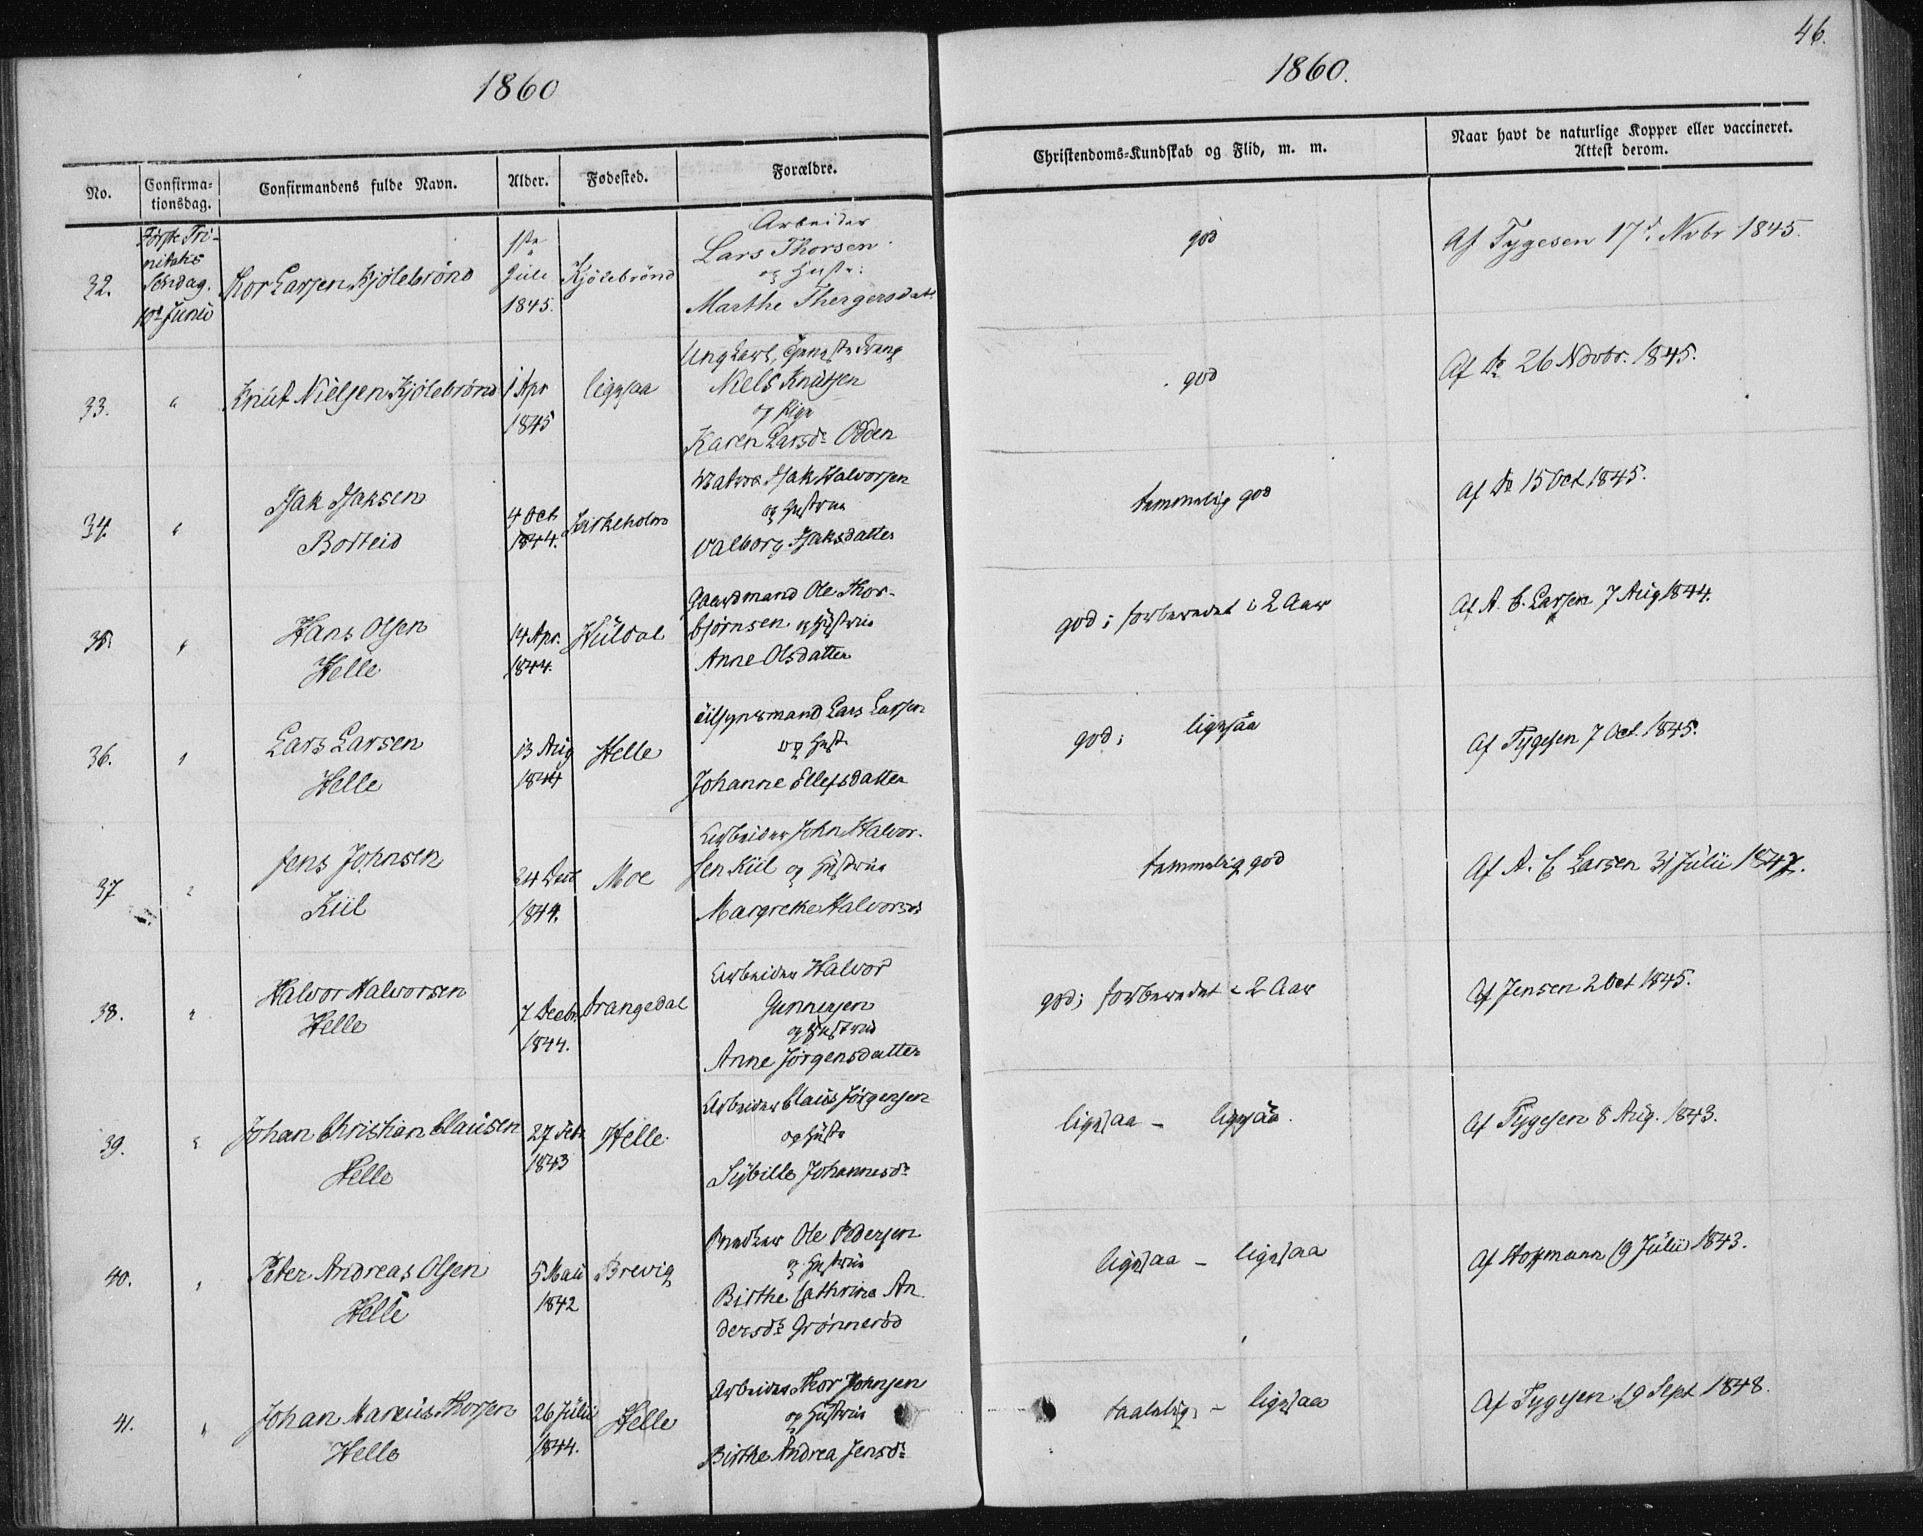 1860
1860.
46.
No.
Confirma-
tionsdag.
Confirmandens fulde Navn.
Alder.
Fødested.
Forældre.
Christendoms-Kundskab og Flid, m. m.
Naar havt de naturlige Kopper eller vaccineret.
Attest derom.
32.
Første Tri-
nitatis
Søndag.
10d Junii
Thor Larsen Kjölebrönd
1ste
Juli
1845.
Kjölebrönd
Arbeider
Lars Thorsen
og Hustr:
Marthe
god
Af Tygesen 17d Novbr 1845.
33.
"
Knut Nielsen Kjölebrönd
1 Apr
1845
ligesaa
Ungkarl,
Niels Knutsen
og Pige
Karen Larsdr Odden
god
Af do 26 Novbr. 1845.
34.
"
Isak Isaksen
Borteid
4 Oct
1844.
Kirkeholm
Isak Halvorsen
og Hustrue
Valborg Isaksdatter
temmelig god
Af do 15 Oct 1845.
35.
"
Hans Olsen
Helle
14 Apr.
1844.
Gaardmand Ole Thor-
bjørnsen og Hustrue
Anne Olsdatter
god; forberedet i 2 Aar
Af A. C. Larsen 7 Aug 1844.
36.
"
Lars Larsen
Helle
13 Aug
1844
Helle
Lars Larsen
og Hust.
Johanne Ellefsdatter
god; ligesaa
Af Tygesen 7 Oct. 1845.
37
"
Jens Johnsen
Kiil
24 Dec
1844.
Moe
Arbeider John Halvor-
sen Kiil og Hustrue
Margrethe Halvorsdr
temmelig god
Af A. C. Larsen 31 Julii 1847.
38.
"
Halvor Halvorsen
Helle
7 Decbr
1844.
Drangedal
Arbeider Halvor
Gunnersen
og Hustrue
Anne Jørgensdatter
god; forberedet i 2 Aar
Af Jensen 2 Oct 1845.
39.
"
Johan Christian Clausen
Helle
27 Febr
1843
Helle
Arbeider Claus Jørgensen
og Hustr
Sibille Johannesdr
ligesaa – ligesaa.
Af Tygesen 8 Aug. 1843.
40.
"
Peter Andreas Olsen
Helle
5 Maii
1842
Brevig
Snedker Ole Pedersen
og Hustrue
Birthe Cathrine An-
dersdr Grønnerød
ligesaa – ligesaa
Af Hoffmann 19 Julii 1843.
41.
"
Johan Marcus Thorsen
Helle
26 Julii
1844.
Helle
Arbeider Thor Johnsen
og Hustrue
Birthe Andrea Jensdr
taalelig – ligesaa
Af Tygesen 19 Sept 1848.